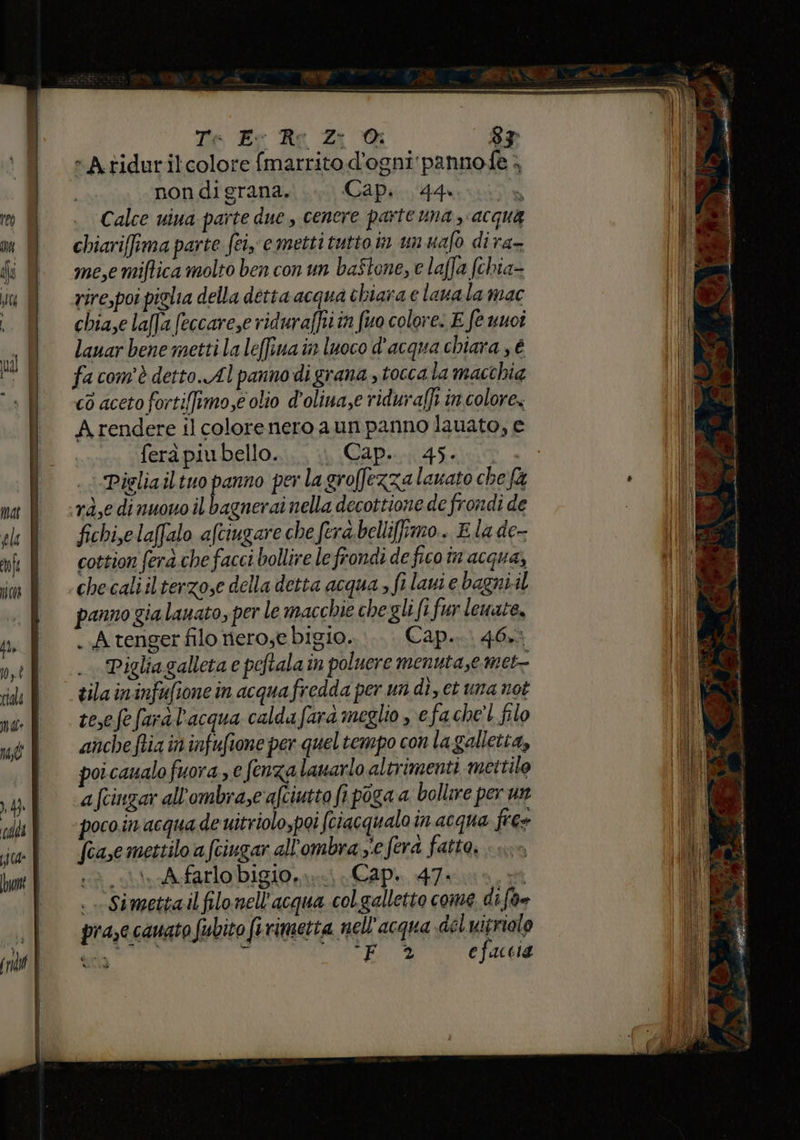 T E R Z O. 83
A ridur il colore ſmarrito d'ogni panno ſe ;
non di grana. Cap. 44.
Calce uiua parte due, cenere parte una, acqua
chiariſſima parte ſei, e metti tutto in un uaſo di ra-
me, e miſtica molto ben con un baſtone, e laſſa ſchia-
rire, poi piglia della detta acqua chiara e laua la mac
chia, e laſſa ſeccare, e riduraſſi in ſuo colore. E ſe uuoi
lauar bene metti la leſſiua in luoco d'acqua chiara, e
fa com'è detto. Al panno di grana, tocca la macchia
cō aceto fortiſſimo, e olio d'oliua, e riduraſſi in colore.
A rendere il colore nero a un panno lauato, e
ſerà piu bello. Cap. 45.
Piglia il tuo panno per la groſſezza lauato che ſa
rà, e di nuouo il bagnerai nella decottione de frondi de
fichi, e laſſalo aſciugare che ſerà belliſſimo. E la de-
cottion ſerà che facci bollire le frondi de fico in acqua,
che cali il terzo, e della detta acqua, ſi laui e bagni il
panno gia lauato, per le macchie che gli ſi fur leuate.
A tenger filo nero, e bigio. Cap. 46.
Piglia galleta e peſtala in poluere menuta, e met-
tila in infuſione in acqua fredda per un dì, et una not
te, e ſe ſarà l'acqua calda ſarà meglio, e fa che'l filo
anche ſtia in infuſione per quel tempo con la galletta,
poi caualo fuora, e ſenza lauarlo altrimenti mettilo
a ſciugar all'ombra, e aſciutto ſi pōga a bollire per un
poco in acqua de uitriolo, poi ſciacqualo in acqua fre-
ſca, e mettilo a ſciugar all'ombra, e ſerà fatto.
A farlo bigio. Cap. 47.
Si metta il filo nell'acqua col galletto come di ſo-
pra, e cauato ſubito ſi rimetta nell'acqua del uitriolo
F 2 e faccia